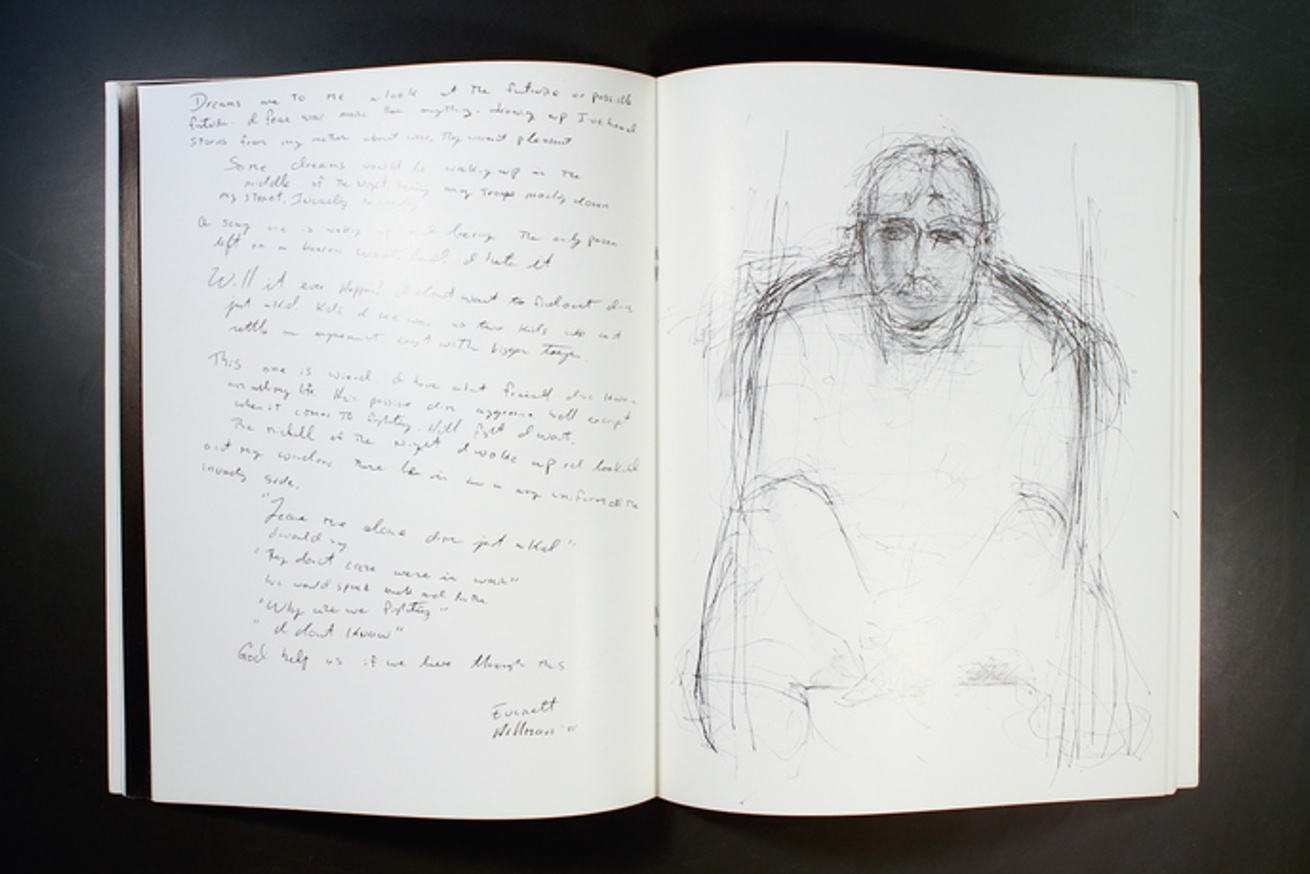 Dreams are to me a look at the future or possible
future. I fear war more than anything. growing up I've heard
stories from my mother about war, they weren't pleasent
Some dreams would be waking up in the
middle of the night, seeing army troops march down
my street,
a scary one is waking up and being the only person
left on a barren waste land. I hate it
Will it ever Happen? I dont want to find out
just a kid I see war as two kids who cant
settle an agreement, except with bigger
This one is wierd I have a
all my life. He's passive aggressive, well except
when it comes to fighting. He'll fight I wont.
The middle of the night I woke up and looked
out my window, there he is in an army uniform of the
side.
"Leave me alone just a kid"
I would say
"They don't care were in war"
we would speak back and forth
"Why are we fighting"
"I dont know"
God help us if we live through this
Everett